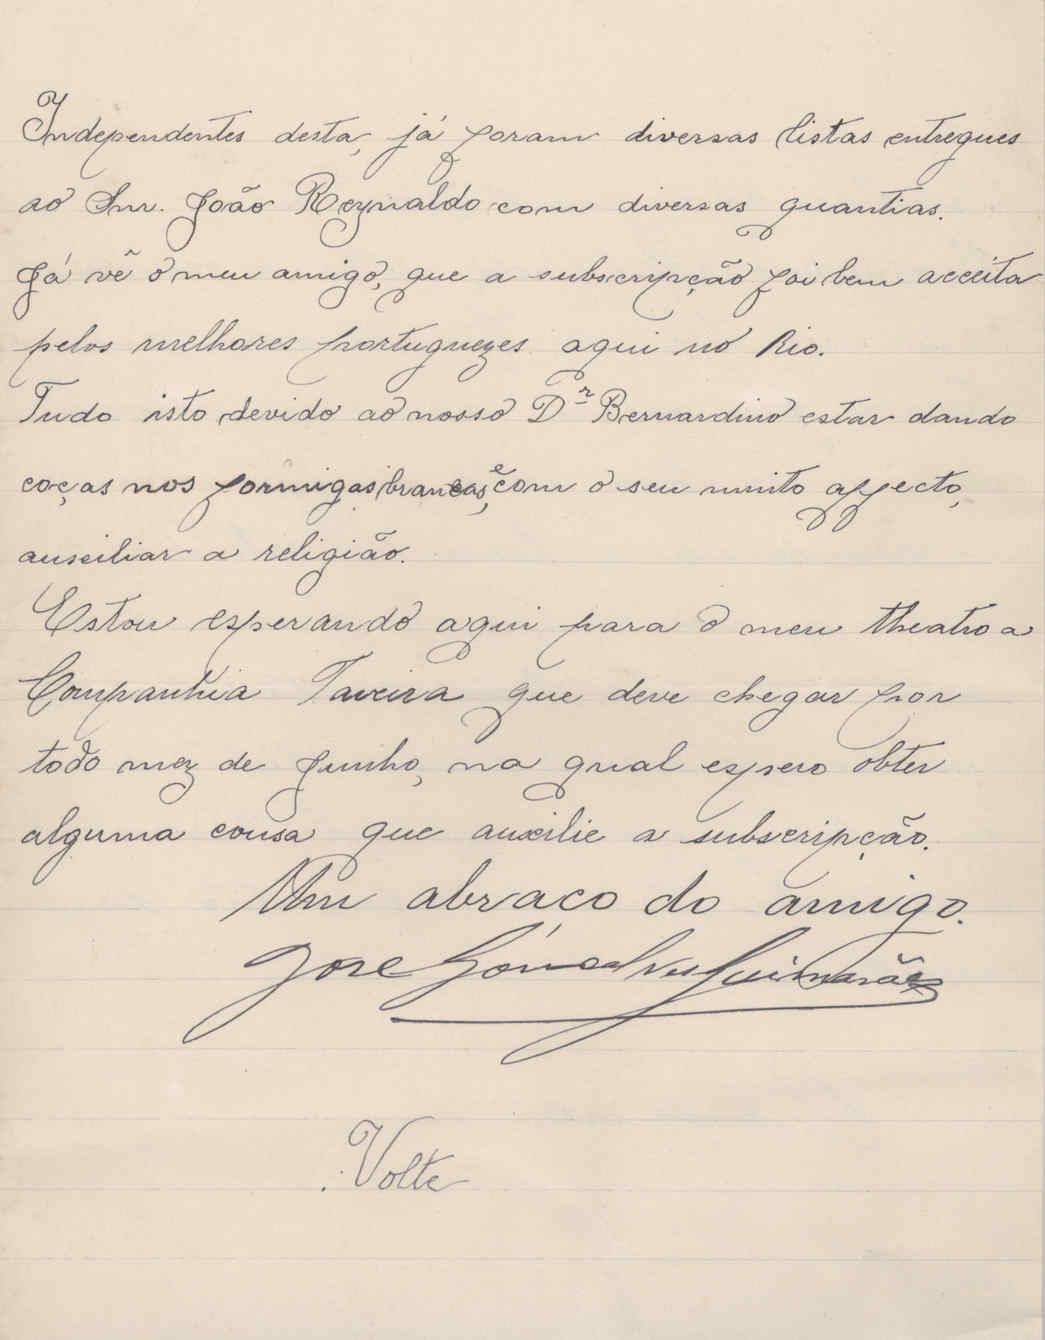 Independentes desta, já foram diversas listas entregues
ao Snr. João Reynaldo com diversas quantias.
Já vê o meu amigo, que a subscripção foi bem acceita
pelos melhores portuguezes aqui no Rio.
Tudo isto devido ao nosso Dr Bernardino estar dando
coças nos formigas brancas, e com o seu muito affecto,
auxiliar a religião.
Estou esperando aqui para o meu theatro a
Companhia Taveira que deve chegar por
todo mez de Junho, na qual espero obter
alguma cousa que auxilie a subscripção.
Um abraço do amigo.
José Gonçalves Guimarães
Volte